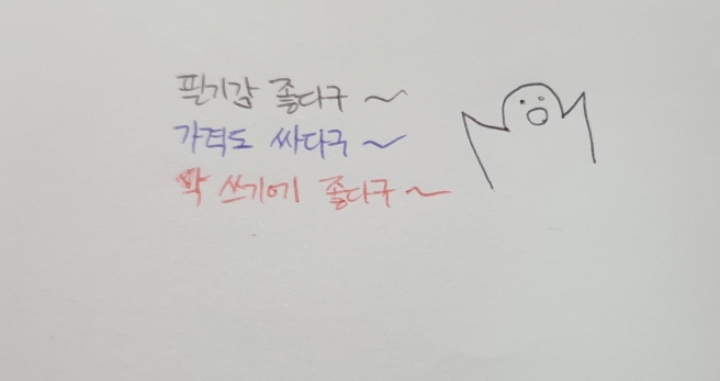 필기감 좋다구~
가격도 싸다구~
막 쓰기에 좋다구~